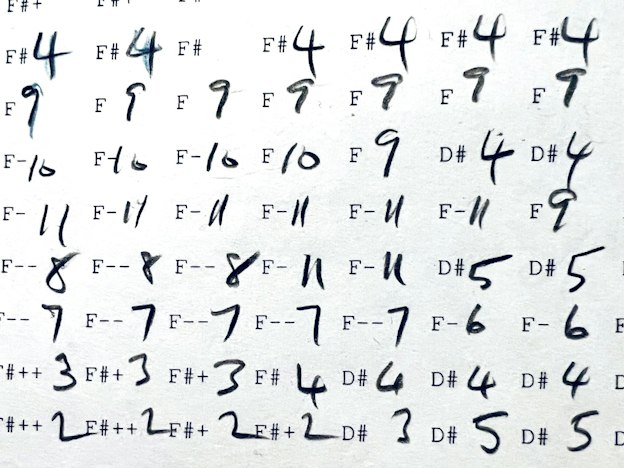 F#+ F#+ F#
F#4 F#4 F# F#4 F#4 F#4 F#4
F9 F9 F9 F9 F9 F9 F9
F-10 F-10 F-10 F10 F9 D#4 D#4
F-11 F-11 F-11 F-11 F-11 F-11 F9
F--8 F--8 F--8 F-11 F-11 D#5 D#5
F--7 F--7 F--7 F--7 F--7 F-6 F-6 F
F#++3 F#+3 F#+3 F#4 D#4 D#4 D#4 D
F#++2 F#++2 F#+2 F#+2 D#3 D#5 D#5 D